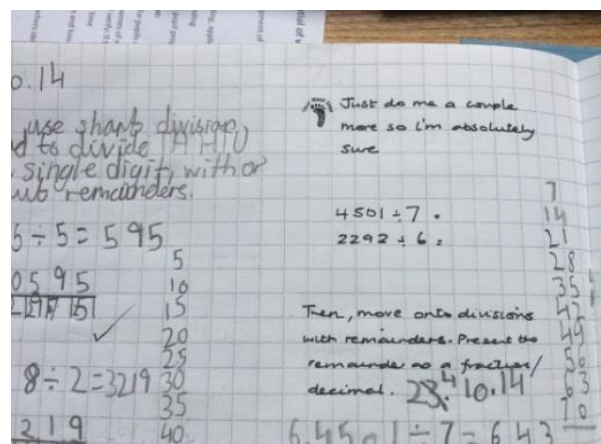 0.14
use short division
d to divide TH HTU
single digit, with or
remainders.
5÷5=595
5
0595
10
15
20
25
8÷2=3219
30
35
219
40
Just do me a couple
more so I'm absolutely
sure
4501÷7=
2292÷6=
Then, move onto divisions
with remainders. Present the
remainder as a fraction/
decimal.
10.14
7
14
21
28
35
42
49
56
63
70
6.4501÷7=643